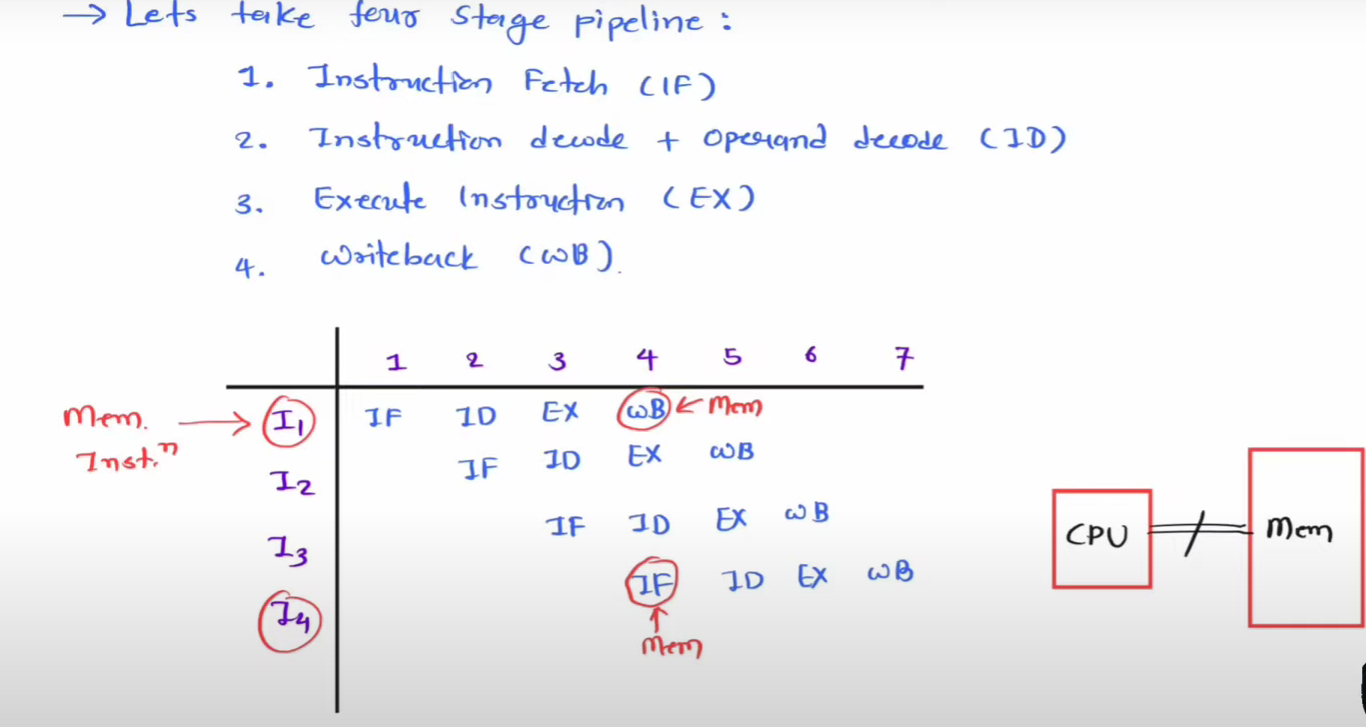 → Lets take four stage pipeline :
1. Instruction Fetch (IF)
2. Instruction decode + Operand decode (ID)
3. Execute Instruction (EX)
4. Writeback (WB).
1 2 3 4 5 6 7
Mem. Inst.ⁿ → I₁ IF ID EX WB ← Mem
I₂ IF ID EX WB
I₃ IF ID EX WB
I₄ IF ID EX WB
Mem
CPU Mem